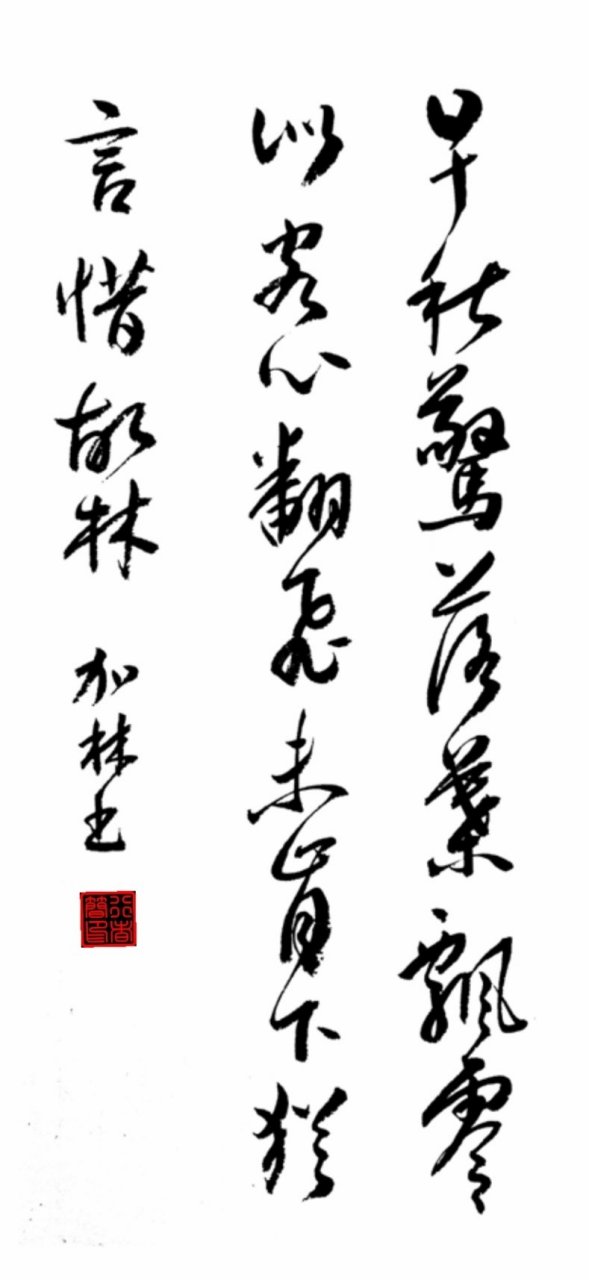 早秋驚落葉飄零
似客心翻飛未肯下猶
言惜故林
加林书